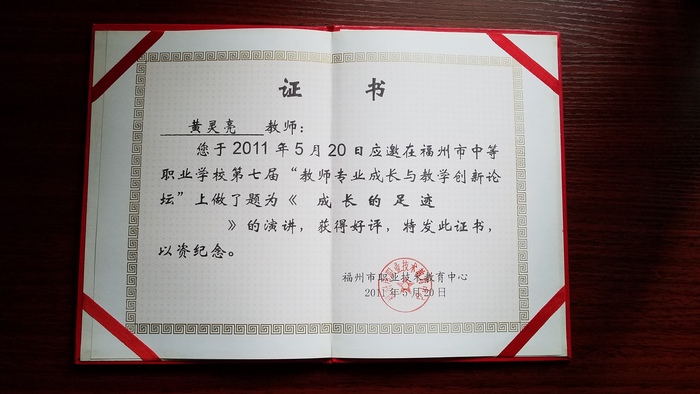 证 书
黄灵亮 教师：
您于2011年5月20日应邀在福州市中等
职业学校第七届“教师专业成长与教学创新论
坛”上做了题为《 成长的足迹
》的演讲，获得好评，特发此证书，
以资纪念。
福州市职业技术教育中心
2011年5月20日